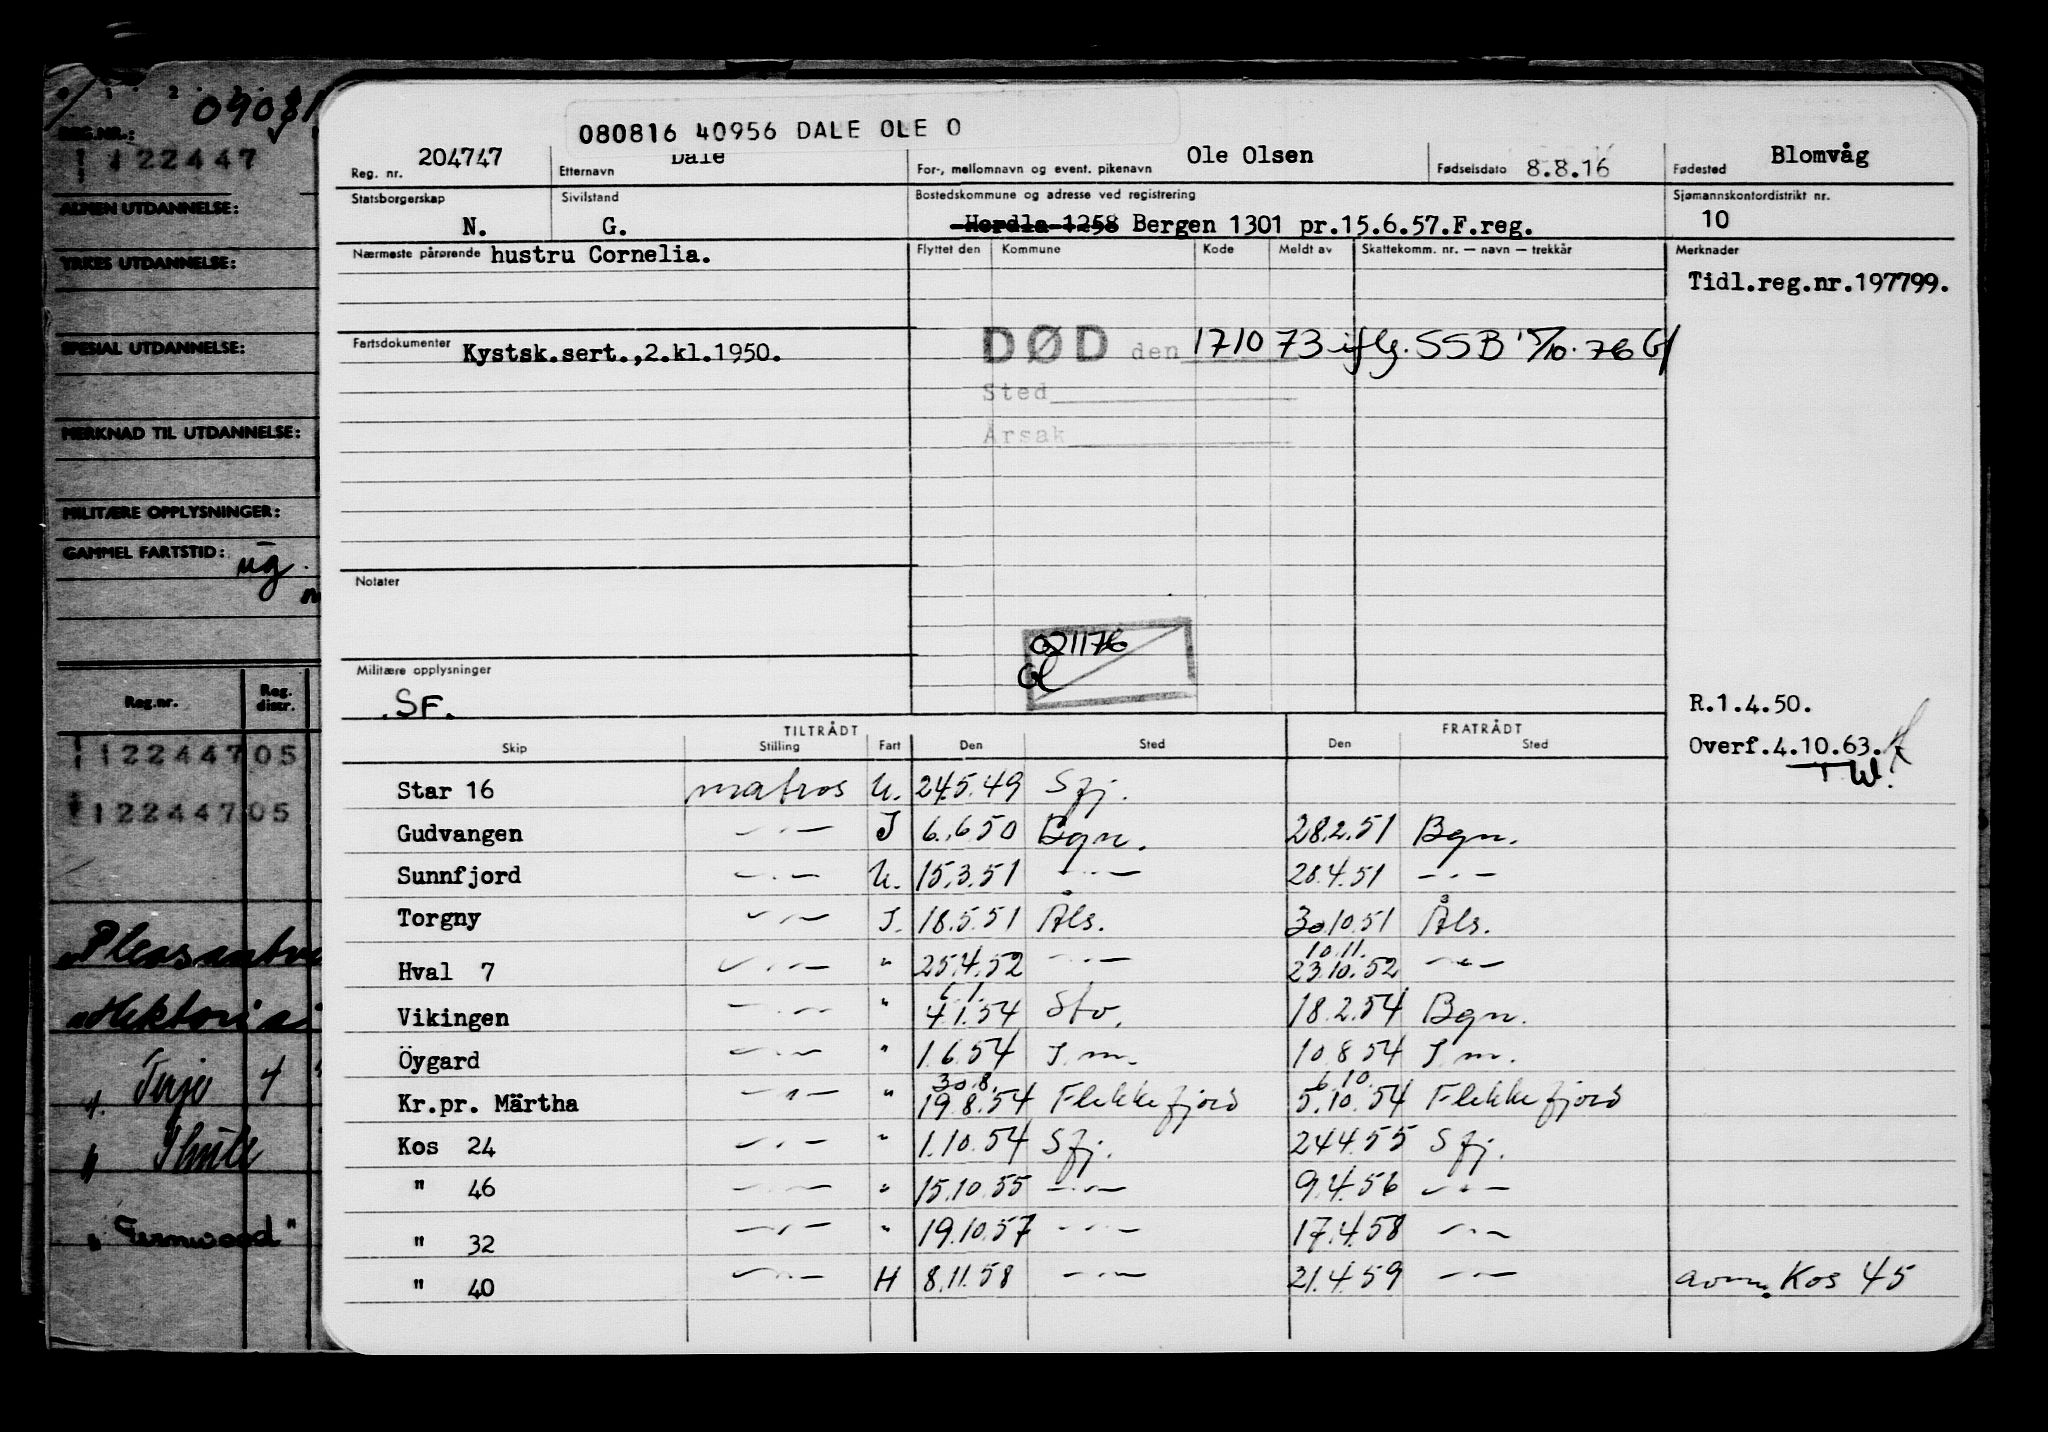 080816 40956 DALE OLE O
Reg. nr. 204747 Etternavn Dale For-, mellomnavn og event. pikenavn Ole Olsen Fødselsdato 8.8.16 Fødested Blomvåg
Statsborgerskap N. Sivilstand G. Bostedskommune og adresse ved registrering Herdla 1258 Bergen 1301 pr.15.6.57.F.reg. Sjømannskontordistrikt nr. 10
Nærmeste pårørende hustru Cornelia. Flyttet den Kommune Kode Meldt av Skattekomm. nr. — navn — trekkår Merknader
Tidl.reg.nr.197799.
Fartsdokumenter Kystsk.sert.,2.kl.1950. DØD den 171073 iflg. SSB 15/10.76 Gl
Sted
Årsak
Notater
021176
Gl
Militære opplysninger
.SF.
R.1.4.50.
Overf.4.10.63.
T.W.
TILTRÅDT FRATRÅDT
Skip Stilling Fart Den Sted Den Sted
Star 16 matros U. 24.5.49 Sfj.
Gudvangen — · — J 6.6.50 Bgn. 28.2.51 Bgn.
Sunnfjord — · — U. 15.3.51 — · — 20.4.51 — · —
Torgny — · — J. 18.5.51 Åls. 30.10.51 Åls.
10.11.
Hval 7 — · — " 25.4.52 — · — 23.10.52 — · —
6.1.
Vikingen — · — " 4.1.54 Sto. 18.2.54 Bgn.
Öygard — · — " 1.6.54 J.m. 10.8.54 J.m.
30.8. 6.10.
Kr.pr. Märtha — · — " 19.8.54 Flekkefjord 5.10.54 Flekkefjord
Kos 24 — · — " 1.10.54 Sfj. 24.4.55 Sfj.
" 46 — · — " 15.10.55 — · — 9.4.56 — · —
" 32 — · — " 19.10.57 — · — 17.4.58 — · —
" 40 — · — H 8.11.58 — · — 21.4.59 — · — avm. Kos 45
REG.NR.:
122447
ALMEN UTDANNELSE:
YRKES UTDANNELSE:
SPESIAL UTDANNELSE:
MERKNAD TIL UTDANNELSE:
MILITÆRE OPPLYSNINGER:
GAMMEL FARTSTID: ug.
Reg.nr. Reg. distr.
122447 05
122447 05
Terje 4
Thule
"Fernwood"